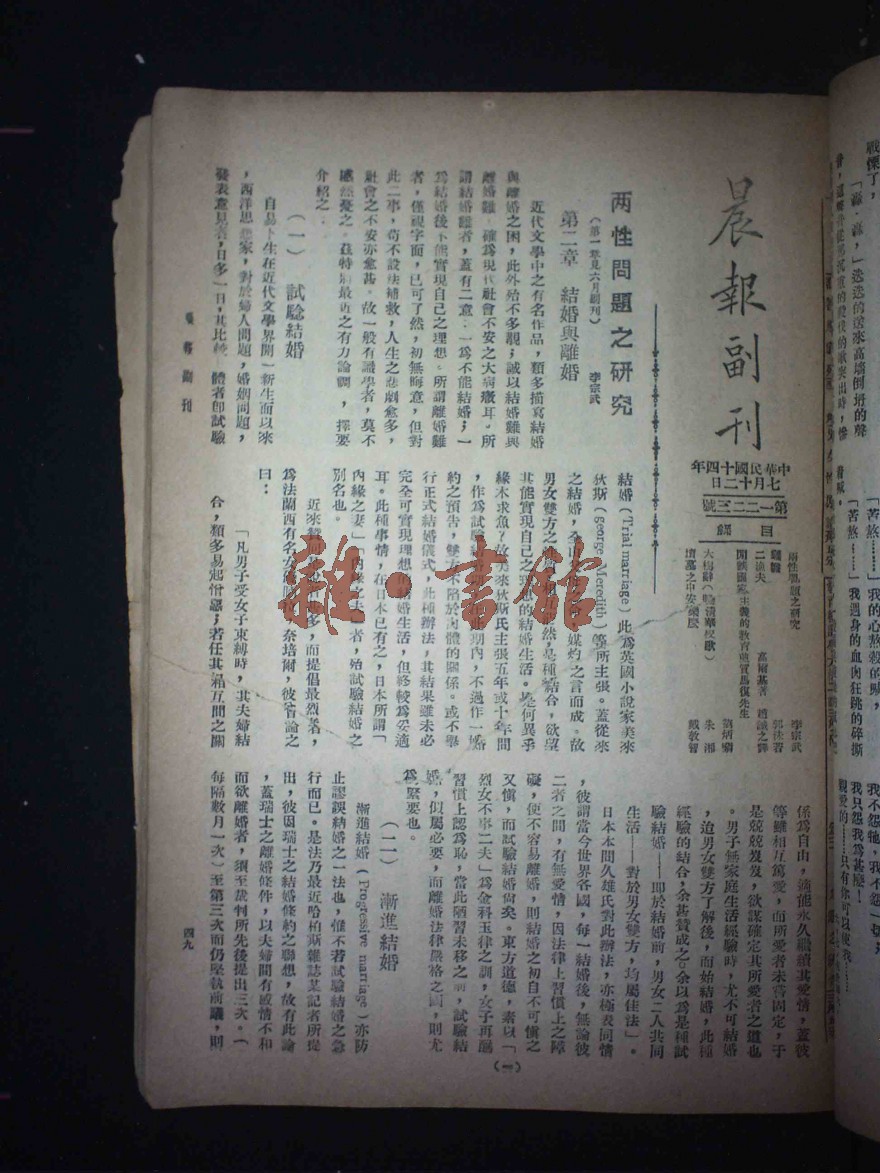 晨報副刊
中華民國十四年
七月十二日
第一二二三號
目錄
兩性問題之研究 李宗武
二漁夫
大梅辭(…清華校歌) 朱湘
戴敦智
两性問題之研究
(第一章見六月副刊) 李宗武
第二章 結婚與離婚
近代文學中之有名作品,類多描寫結婚
與離婚之困,此外殆不多覩;誠以結婚難與
離婚難,確爲現代社會不安之大病癥耳。所
謂結婚難者,蓋有二意:一爲不能結婚;一
爲結婚後不能實現自己之理想。所謂離婚難
者,僅視字面,已可了然,初無晦意,但對
此二事,苟不設法補救,人生之悲劇愈多,
社會之不安亦愈甚。故一般有識學者,莫不
慮無擬之。茲特將最近之有力論調,擇要
介紹之:
(一) 試驗結婚
自易卜生在近代文學界開一新生面以來
,西洋思想家,對於婦人問題,婚姻問題,
發表意見者,日多一日,其比較 體者卽試驗
結婚(Trial marriage)此爲英國小說家美來
狄斯(george Meredith)等所主張。蓋從來
之結婚,全 媒灼之言而成。故
男女雙方之 然,是種結合,欲望
其能實現自己之理想的結婚生活。是何異乎
緣木求魚?故美來狄斯氏主張五年或十年間
,作爲試驗結婚 此期內,不過作一婚
約之預告,雙方不陷於肉體的關係。或不舉
行正式結婚儀式,此種辦法,其結果雖未必
完全可實現理想的結婚生活,但終較爲妥適
耳。此種事情,在日本已有之,日本所謂「
內緣之妻」「內緣之夫」者,殆試驗結婚之
別名也。
近來 多,而提倡最烈者,
爲法蘭西有名女 奈培爾,彼嘗論之
曰:
「凡男子受女子束縛時,其夫婦結
合,類多易起忿懣;若任其 相互間之關
係爲自由,適能永久繼續其愛情,蓋彼
等雖相互篤愛,而所愛者未嘗固定,于
是兢兢岌岌,欲謀確定其所愛者之道也
。男子無家庭生活經驗時,尤不可結婚
,迨男女雙方了解後,而始結婚,此種
經驗的結合,余甚贊成之。余以爲是種試
驗結婚——卽於結婚前,男女二人共同
生活——對於男女雙方,均屬佳法」。
日本本間久雄氏對此辦法,亦極表同情
,彼謂當今世界各國,每一結婚後,無論彼
二者之間,有無愛情,因法律上習慣上之障
礙,便不容易離婚,則結婚之初自不可愼之
又愼,而試驗結婚尙矣。東方道德,素以「
烈女不事二夫」爲金科玉律之訓,女子再醮
習慣上認爲恥,當此陋習未移之前,試驗結
婚,似屬必要,而離婚法律嚴格之國,則尤
爲緊要也。
(二) 漸進結婚
漸進結婚(Progressive marriage)亦防
止謬誤結婚之一法也,惟不若試驗結婚之急
行而已。是法乃最近哈柏斯雜誌某記者所提
出,彼因瑞士之結婚條約之聯想,故有此論
,蓋瑞士之離婚條件,以夫婦間有感情不和
而欲離婚者,須至裁判所先後提出三次。(
每隔數月一次)至第三次而仍堅執前議,則
(一)
晨報副刊
四九
雜·書館
戰慄了,
「苦熬……」我的心熬殺的喲,
「苦熬……」我遇身的血向狂跳的碎撕
我只怨我爲甚麼!
親愛的……只有你可以使我……